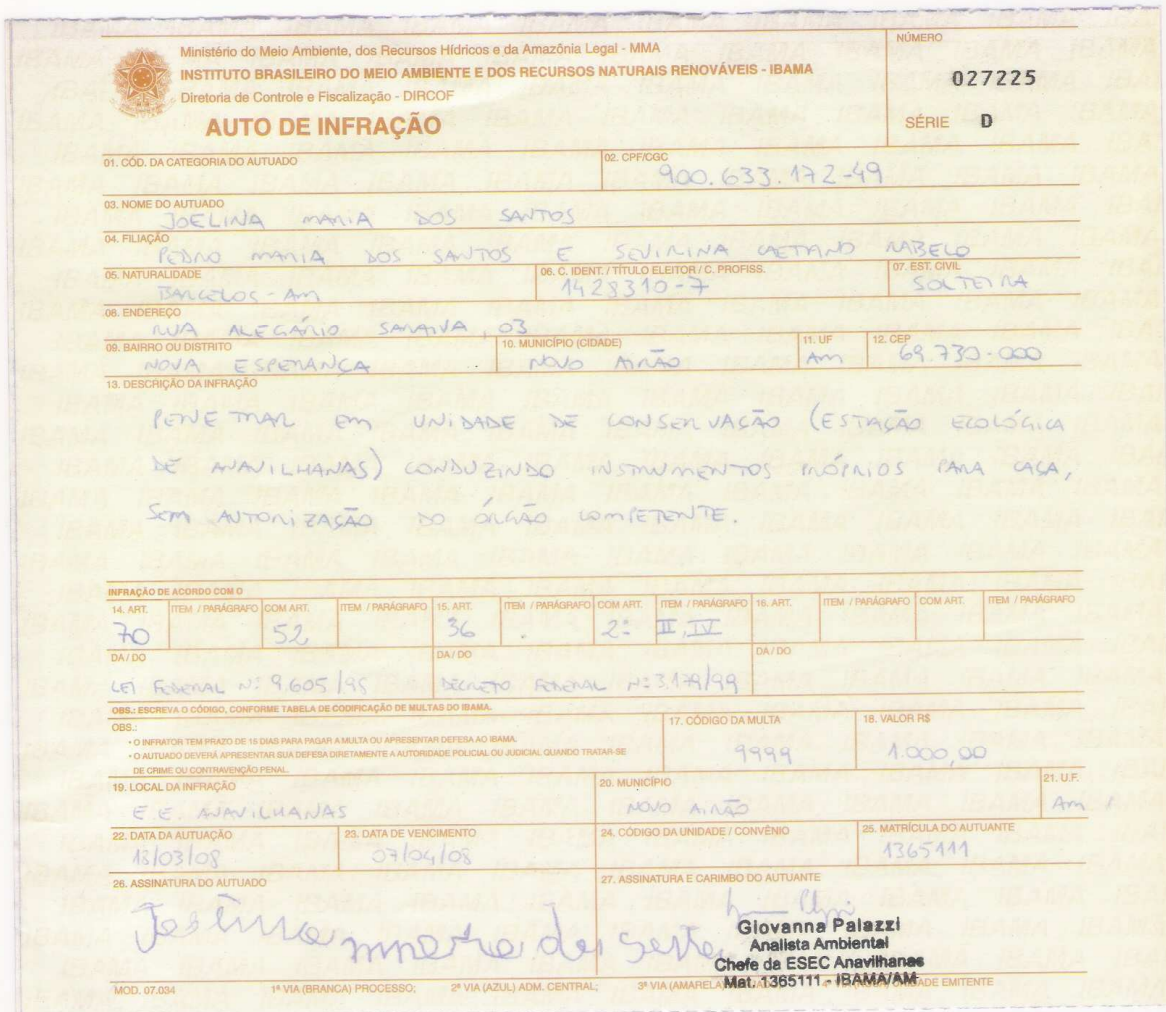 Ministério do Meio Ambiente, dos Recursos Hídricos e da Amazônia Legal - MMA
INSTITUTO BRASILEIRO DO MEIO AMBIENTE E DOS RECURSOS NATURAIS RENOVÁVEIS - IBAMA
Diretoria de Controle e Fiscalização - DIRCOF
AUTO DE INFRAÇÃO
NÚMERO
027225
SÉRIE D
01. CÓD. DA CATEGORIA DO AUTUADO
02. CPF/CGC
900.633.172-49
03. NOME DO AUTUADO
JOELINA MARIA DOS SANTOS
04. FILIAÇÃO
PEDRO MARIA DOS SANTOS E SEVIRINA CAETANO RABELO
05. NATURALIDADE
BARCELOS - AM
06. C. IDENT. / TÍTULO ELEITOR / C. PROFISS.
1428310-7
07. EST. CIVIL
SOLTEIRA
08. ENDEREÇO
RUA ALEGÁRIO SARAIVA, 03
09. BAIRRO OU DISTRITO
NOVA ESPERANÇA
10. MUNICÍPIO (CIDADE)
NOVO AIRÃO
11. UF
AM
12. CEP
69.730-000
13. DESCRIÇÃO DA INFRAÇÃO
PENETRAR EM UNIDADE DE CONSERVAÇÃO (ESTAÇÃO ECOLÓGICA
DE ANAVILHANAS) CONDUZINDO INSTRUMENTOS PRÓPRIOS PARA CAÇA,
SEM AUTORIZAÇÃO DO ÓRGÃO COMPETENTE.
INFRAÇÃO DE ACORDO COM O
14. ART. ITEM / PARÁGRAFO COM ART. ITEM / PARÁGRAFO 15. ART. ITEM / PARÁGRAFO COM ART. ITEM / PARÁGRAFO 16. ART. ITEM / PARÁGRAFO COM ART. ITEM / PARÁGRAFO
70 52 36 2º II, IV
DA / DO DA / DO DA / DO
LEI FEDERAL Nº 9.605/98 DECRETO FEDERAL Nº 3.179/99
OBS.: ESCREVA O CÓDIGO, CONFORME TABELA DE CODIFICAÇÃO DE MULTAS DO IBAMA.
OBS.:
• O INFRATOR TEM PRAZO DE 15 DIAS PARA PAGAR A MULTA OU APRESENTAR DEFESA AO IBAMA.
• O AUTUADO DEVERÁ APRESENTAR SUA DEFESA DIRETAMENTE A AUTORIDADE POLICIAL OU JUDICIAL QUANDO TRATAR-SE
DE CRIME OU CONTRAVENÇÃO PENAL.
17. CÓDIGO DA MULTA
9999
18. VALOR R$
1.000,00
19. LOCAL DA INFRAÇÃO
E.E. ANAVILHANAS
20. MUNICÍPIO
NOVO AIRÃO
21. U.F.
AM
22. DATA DA AUTUAÇÃO
18/03/08
23. DATA DE VENCIMENTO
07/04/08
24. CÓDIGO DA UNIDADE / CONVÊNIO
25. MATRÍCULA DO AUTUANTE
1365111
26. ASSINATURA DO AUTUADO
27. ASSINATURA E CARIMBO DO AUTUANTE
Giovanna Palazzi
Analista Ambiental
Chefe da ESEC Anavilhanas
Mat. 1365111 - IBAMA/AM
MOD. 07.034 1ª VIA (BRANCA) PROCESSO; 2ª VIA (AZUL) ADM. CENTRAL; 3ª VIA (AMARELA) UNIDADE EMITENTE